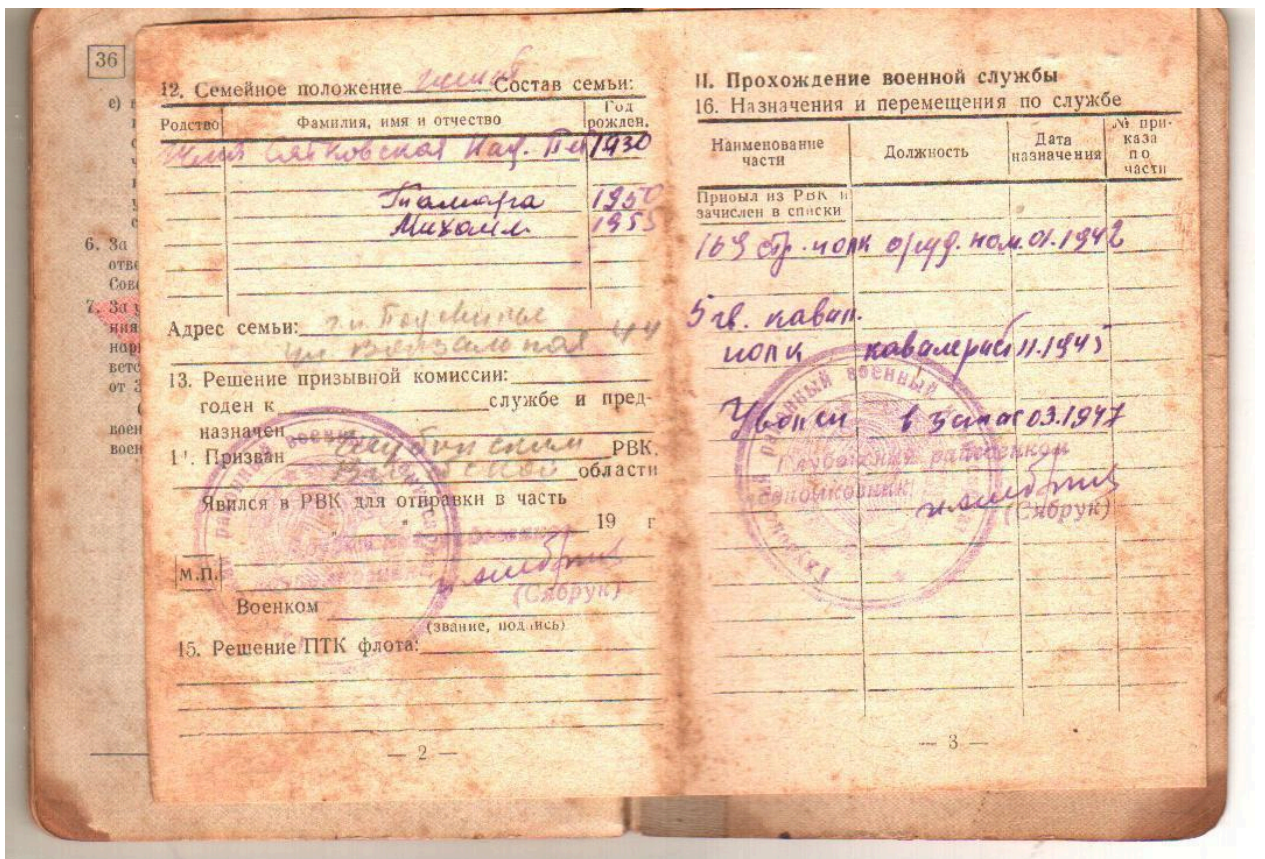 36
е)
6. За
отве
Сове
7. За
ния
нор
ветс
от З
воен
воен
12. Семейное положение Состав семьи:
Родство Фамилия, имя и отчество Год рожден.
Жена Сятковская Над. Пет 1930
Тамара 1950
Михаил 1955
Адрес семьи: г.п. Подсвилье
ул Вокзальная 44
13. Решение призывной комиссии:
годен к службе и пред-
назначен
Призван Глубокским РВК,
Витебской области
Явился в РВК для отправки в часть
" 19 г
М.П.
Военком (Сябрук)
(звание, подпись)
15. Решение ПТК флота:
— 2 —
II. Прохождение военной службы
16. Назначения и перемещения по службе
Наименование части Должность Дата назначения № при-каза по части
Прибыл из РВК и
зачислен в списки
169 стр. полк оруд. ном. 01.1942
5 гв. кавал.
полк кавалерист 11.1945
Уволен в запас 03.1947
Глубокский райвоенком
подполковник
(Сябрук)
— 3 —